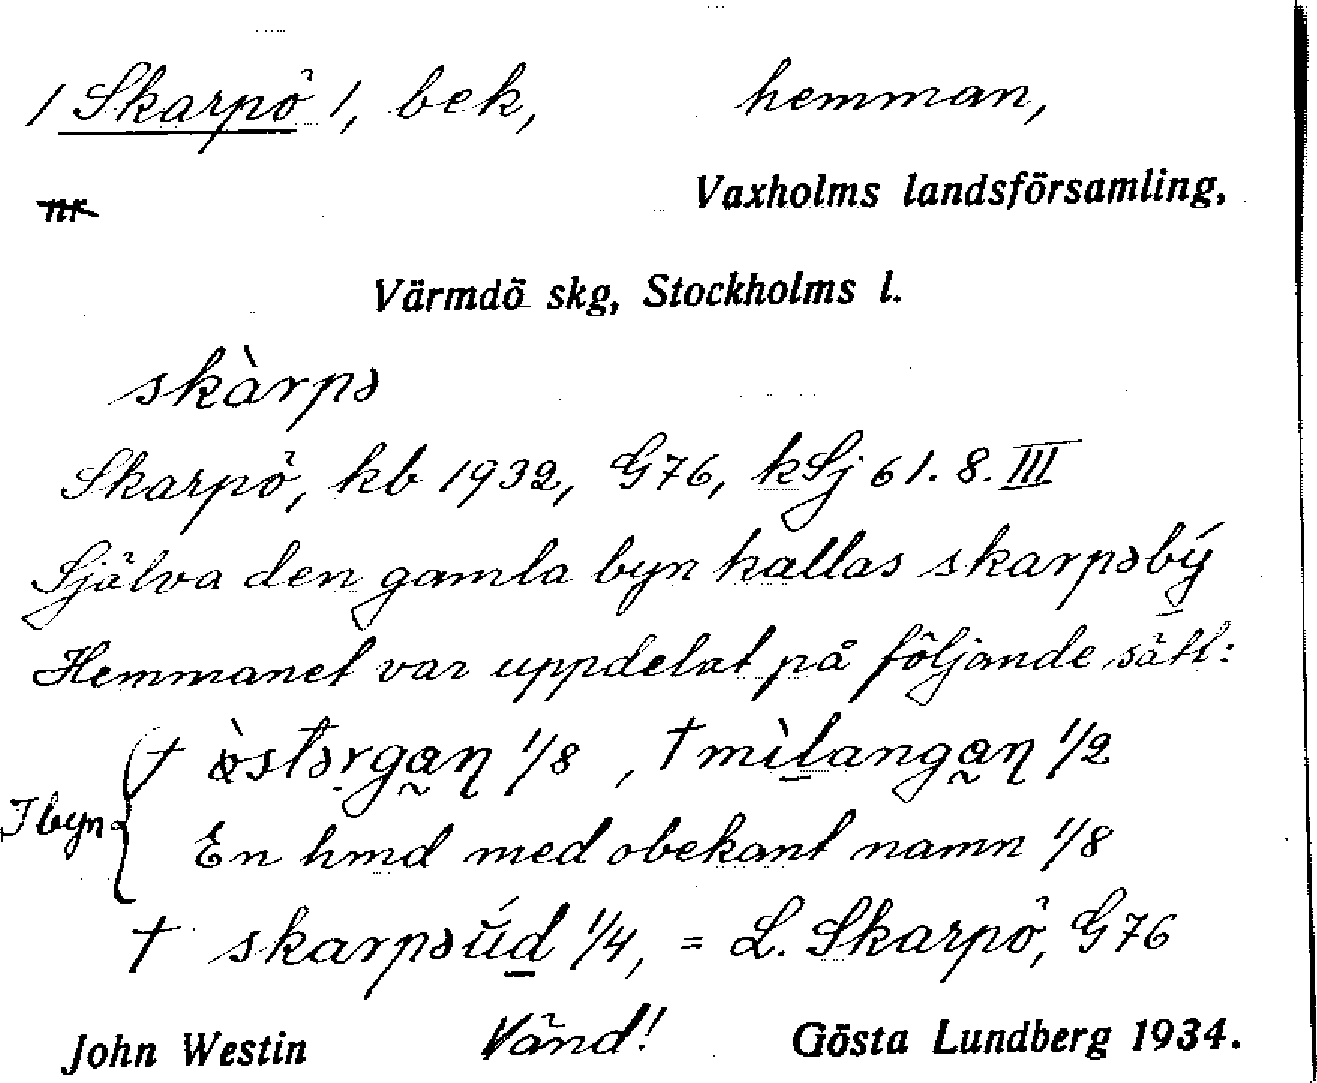 / Skarpö /, bek, hemman,
nr
Vaxholms landsförsamling,
Värmdö skg, Stockholms l.
skàrpə
Skarpö, kb 1932, G76, kSj 61.8.III
Själva den gamla byn kallas skarpəbý
Hemmanet var uppdelat på följande sätt:
† òstərgan̥ 1/8 , † mìlangan̥ 1/2
I byn
En hmd med obekant namn 1/8
† skarpəúd 1/4, = L. Skarpö, G76
John Westin Vänd! Gösta Lundberg 1934.